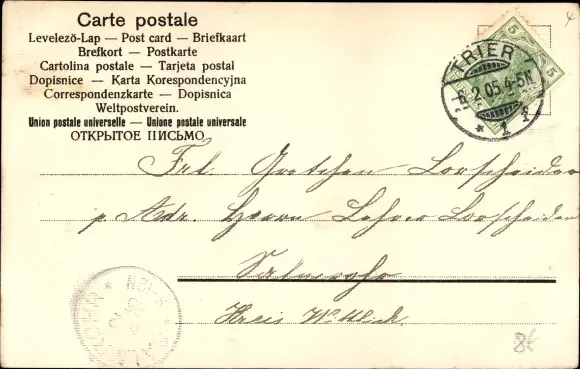 Carte postale
Levelezö-Lap — Post card — Briefkaart
Brefkort — Postkarte
Cartolina postale — Tarjeta postal
Dopisnice — Karta Korespondencyjna
Correspondenzkarte — Dopisnica
Weltpostverein.
Union postale universelle — Unione postale universale
ОТКРЫТОЕ ПИСЬМО
5 5
TRIER
6.2.05.4-5N.
* 1
Frl. Gretchen Lorscheider
p. Adr. Herrn Lehrer Lorscheider
Salmrohr
Kreis Wittlich.
8€